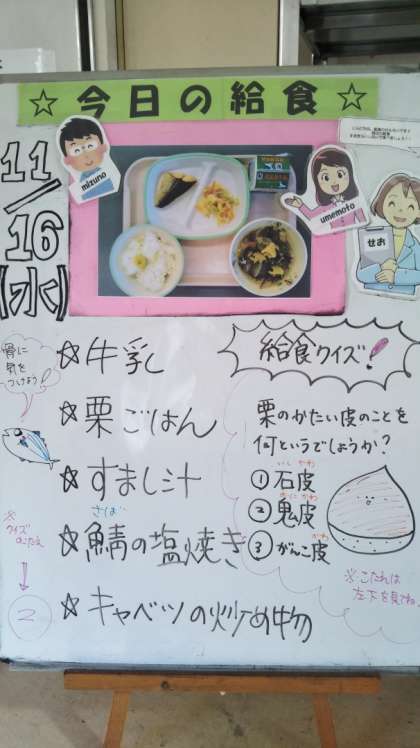 ☆今日の給食☆
11/16(水)
mizuno
umemoto
せお
☆牛乳
☆栗ごはん
☆すまし汁
さば
☆鯖の塩焼き
☆キャベツの炒め物
骨に
気を
つけよう!
※
クイズ
のこたえ
↓
②
給食クイズ!
栗のかたい皮のことを
何というでしょうか?
いし かわ
①石皮
おに かわ
②鬼皮
かわ
③がんこ皮
※こたえは
左下を見てね。